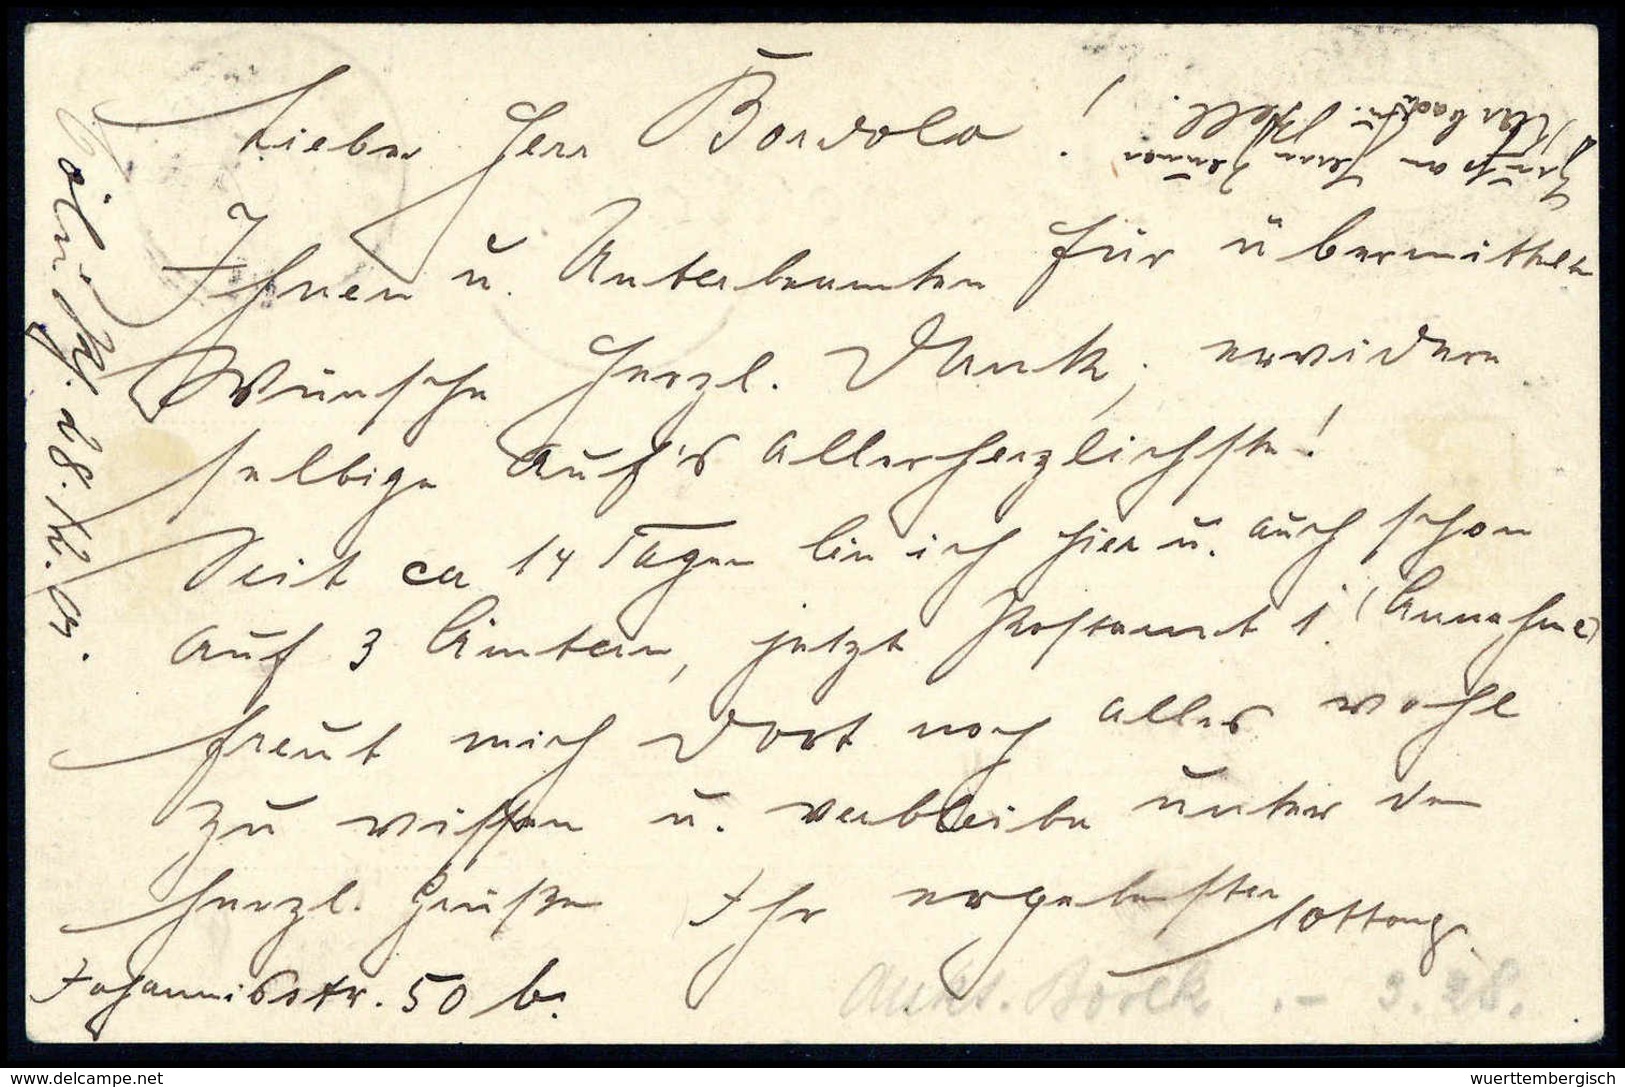 Cöln a/Rh. 28./12. 01.
Lieber Herr Bordolo!
Ihnen u. Unterbeamten für übermittelte
Wünsche herzl. Dank, erwidere
selbige auf's allerherzlichste!
Seit ca 14 Tagen bin ich hier u. auch schon
auf 3 Ämtern, jetzt Postamt 1 (Annahme)
freut mich dort noch alles wohl
zu wissen u. verbleibe unter den
herzl. Grüßen Ihr ergebenster
Johannisstr. 50 b.
Grüße an Herrn
wuerttembergisch